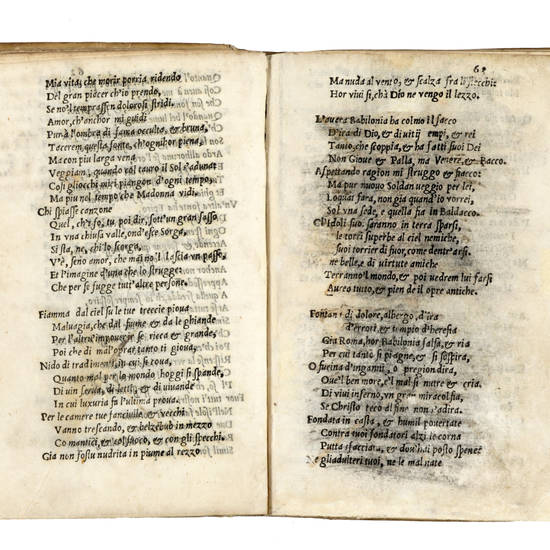 Mia vita, che morir poria, ridendo
Del gran piacer ch'io prendo,
Se no'l temprassen dolorosi stridi.
Amor, ch'anchor mi guidi
Pur à l'ombra di fama occulta, & bruna,
Tacerem questa fonte, ch'ognihor piena,
Ma con piu larga vena
Veggiam, quando col tauro il Sol s'adunat
Cosi gliocchi miei piangon d'ogni tempo,
Ma piu nel tempo che Madonna vidi.
Chi spiasse canzone
Quel, ch'i fo, tu poi dir, sott'un gran sasso
In vna chiusa valle, ond'esse Sorga,
Si sta, ne, chi lo scorga,
V'è, senò amor, che mai no'l lascia vn passo,
Et l'imagine d'una che lo strugge:
Che per se fugge tutt'altre persone.
Fiamma dal ciel su le tue treccie piova
Malvagia, che dal fiume & da le ghiande
Per l'altrui impouerir se ricca & grande,
Poi che di mal'oprar tanto ti giova,
Nido di tradimenti, in cui si coua,
Quanto mal per lo mondo hoggi si spande,
Di vin serua, di letti, & di uiuande
In cui luxuria fa l'ultima proua.
Per le camere tue fanciulle, & vecchi
Vanno trescando, & belzebub in mezzo
Co mantici, & col fuoco, & con gli specchi.
Gia non fostu nudrita in piume al rezzo
63
Ma nuda al vento, & scalza fra li stecchi:
Hor viui si, chà Dio ne vengo il lezzo.
L'auara Babilonia ha colmo il sacco
D'ira di Dio, & di vitij empi, & rei
Tanto, che scoppia, & ha fatti suoi Dei
Non Gioue & Palla, ma Venere, & Bacco.
Aspettando ragion mi struggo & fiacco:
Ma pur nouo Soldan veggio per lei,
Loqual fara, non gia quand'io vorrei,
Sol vna sede, e quella fia in Baldacco.
Gl'Idoli suoi saranno in terra sparsi,
le torri superbe al ciel nemiche,
suoi torrier di fuor, come dentr'arsi.
ne belle, e di virtute amiche
Terranno'l mondo, & poi vedrem lui farsi
Aureo tutto, & pien de il opre antiche.
Fontana di dolore, albergo, d'ira
d'errori, & tempio d'heresia
Gia Roma, hor Babilonia falsa, & ria
Per cui tanto si piagne, & si sospira,
O fucina d'inganni, o pregion dira,
Oue'l ben more, e'l mal si nutre & cria.
Di viui inferno, vn gran miracol fia,
Se Christo teco al fine non s'adira.
Fondata in casta, & humil pouertate
Contra tuoi fondatori alzi le corna
Putta sfacciata, & dou'hai posto spene?
Ne gliadulteri tuoi, ne le mal nate